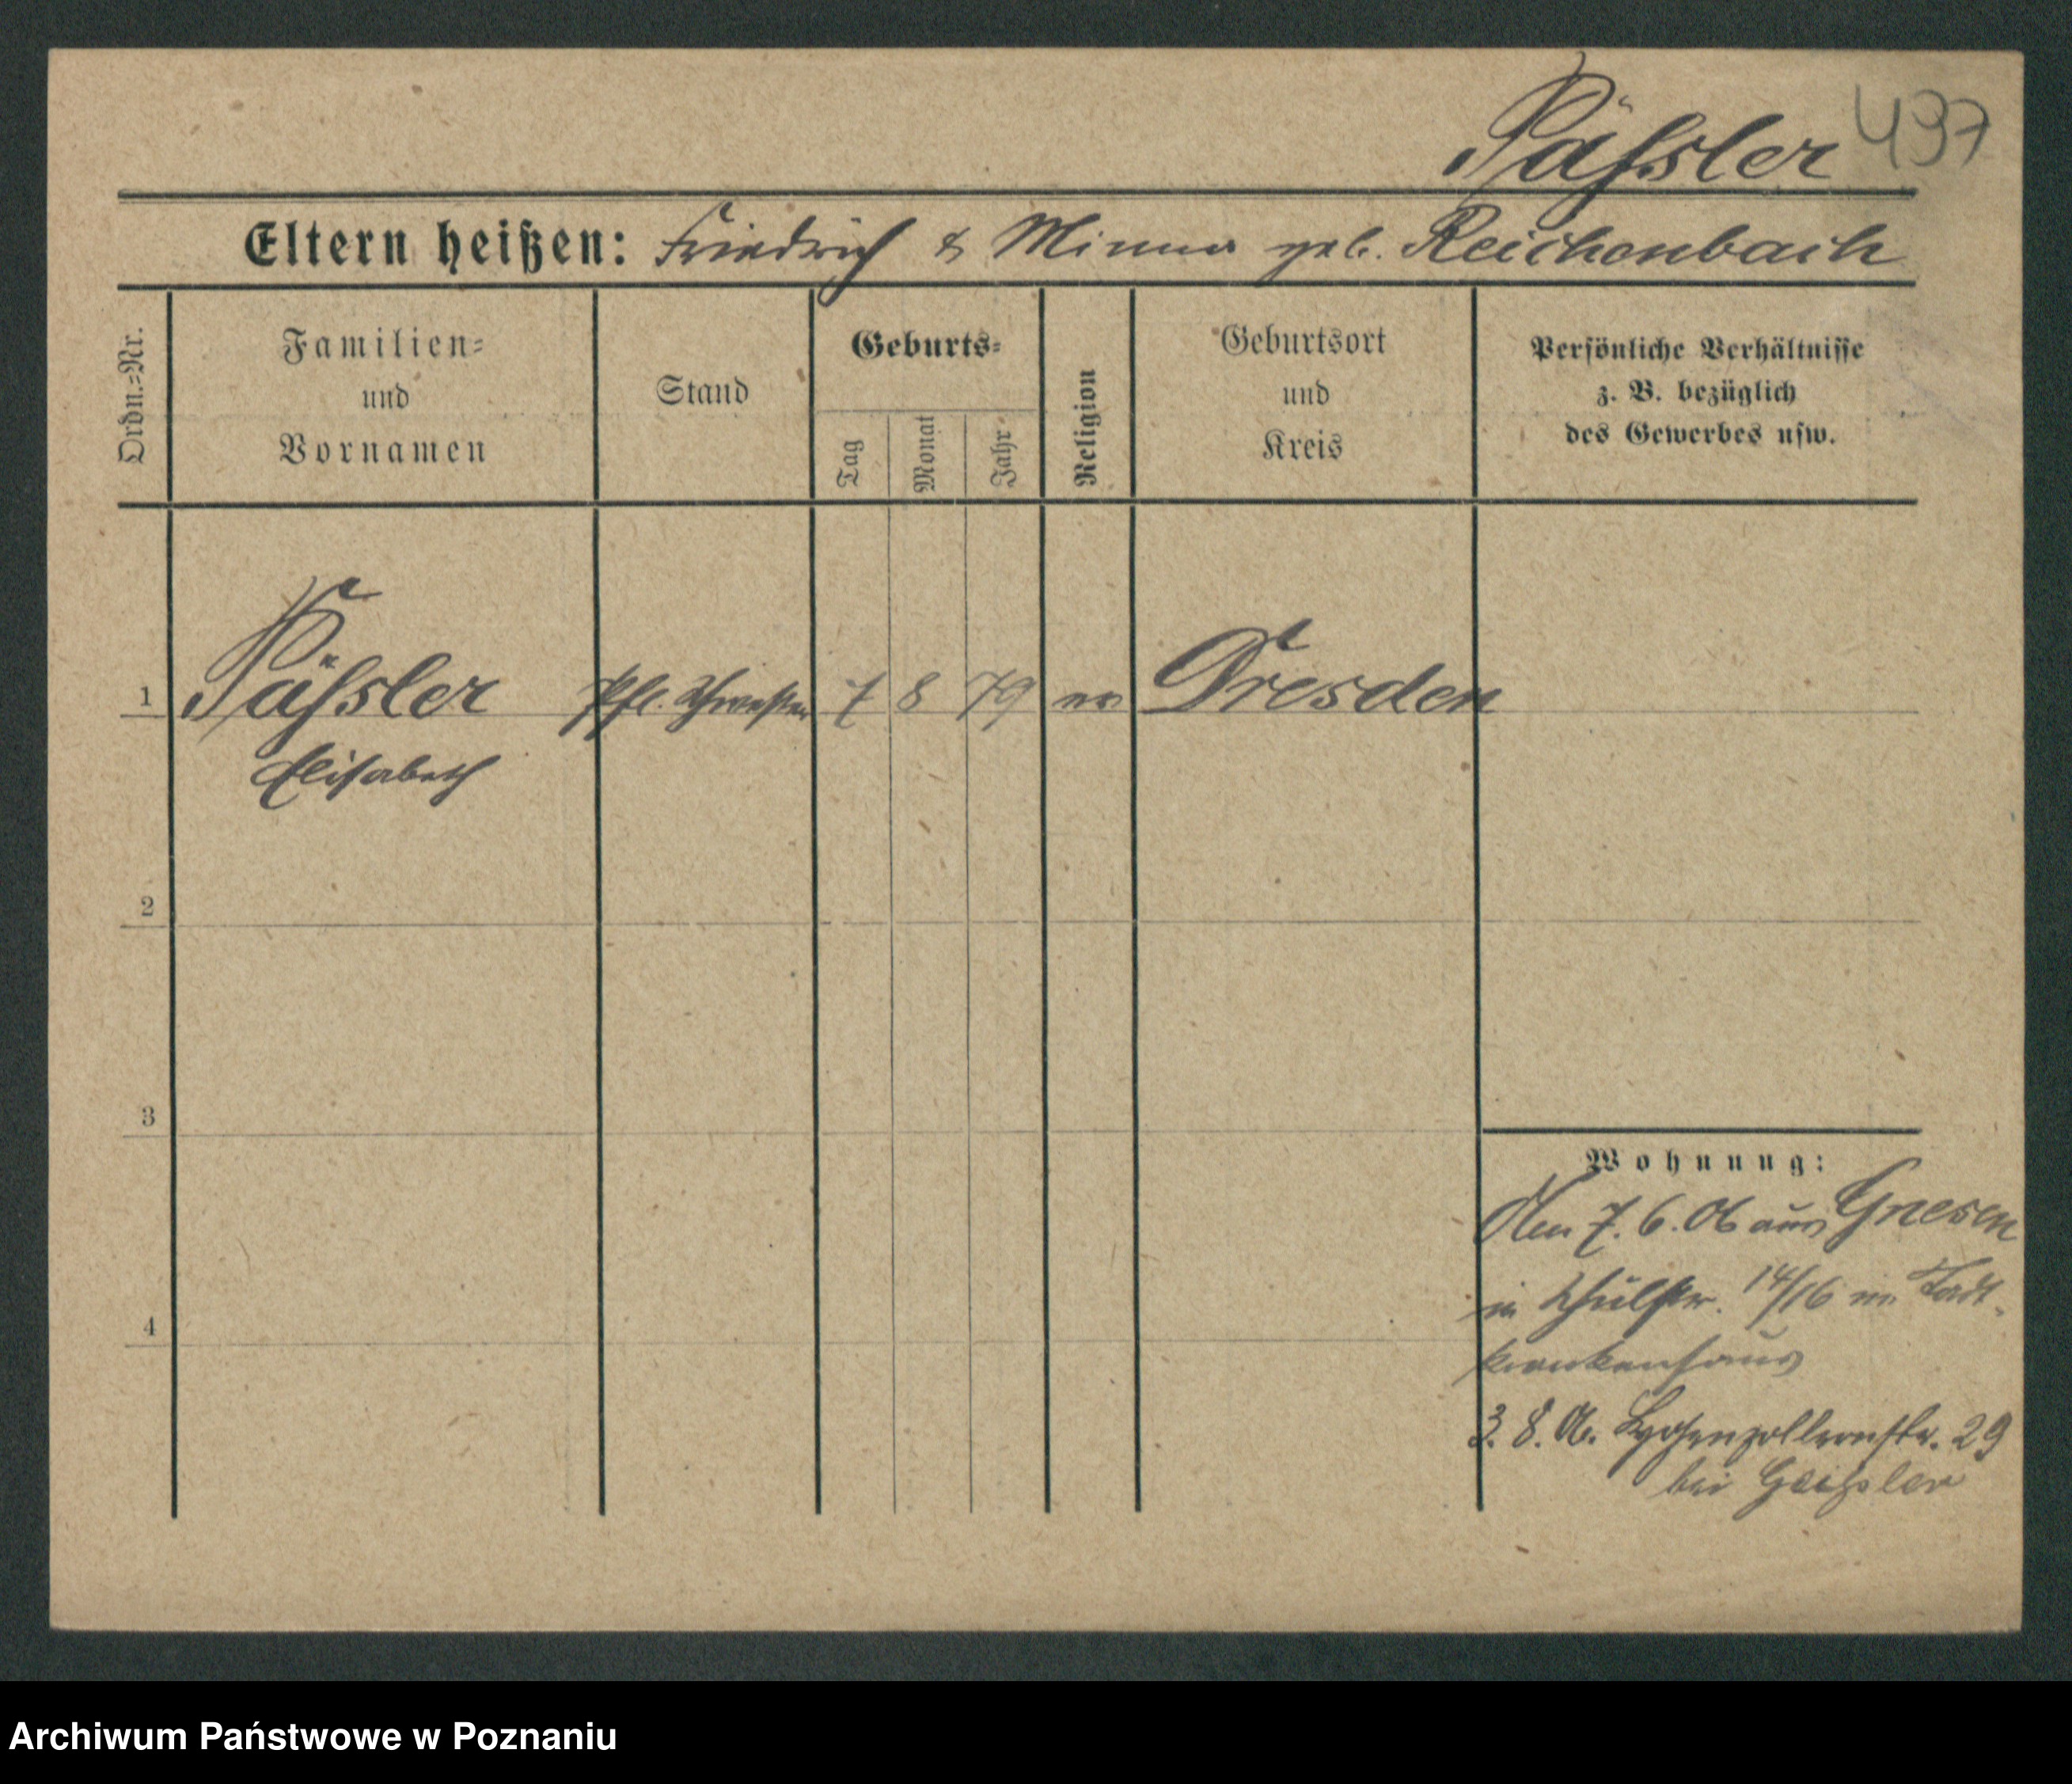 Päfsler 437
Eltern heißen: Friedrich & Minna geb. Reichenbach
Ordn.=Nr.
Familien=
und
Vornamen
Stand
Geburts=
Tag
Monat
Jahr
Religion
Geburtsort
und
Kreis
Persönliche Verhältnisse
z. B. bezüglich
des Gewerbes usw.
1 Päfsler Pfl. Schwester 7 8 79 ev Dresden
Elisabeth
2
3
4
Wohnung:
Den 7. 6. 06 aus Gnesen
in Schulstr. 14/16 im Stadt-
krankenhaus
3. 8. 06. Hohenzollernstr. 29
bei Geißler
Archiwum Państwowe w Poznaniu